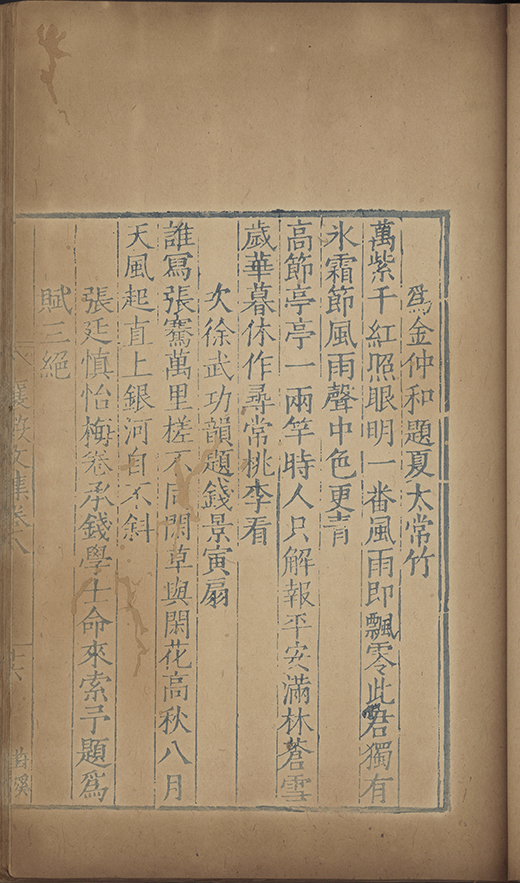 為金仲和題夏太常竹
萬紫千紅照眼明一番風雨即飄零此君獨有
氷霜節風雨聲中色更青
高節亭亭一兩竿時人只解報平安滿林蒼雪
歲華暮休作尋常桃李看
次徐武功韻題錢景寅扇
誰寫張騫萬里槎不同閑草與閑花高秋八月
天風起直上銀河自不斜
張廷慎怡梅卷承錢學士命來索予題爲
賦三絕
襄敏文集卷八